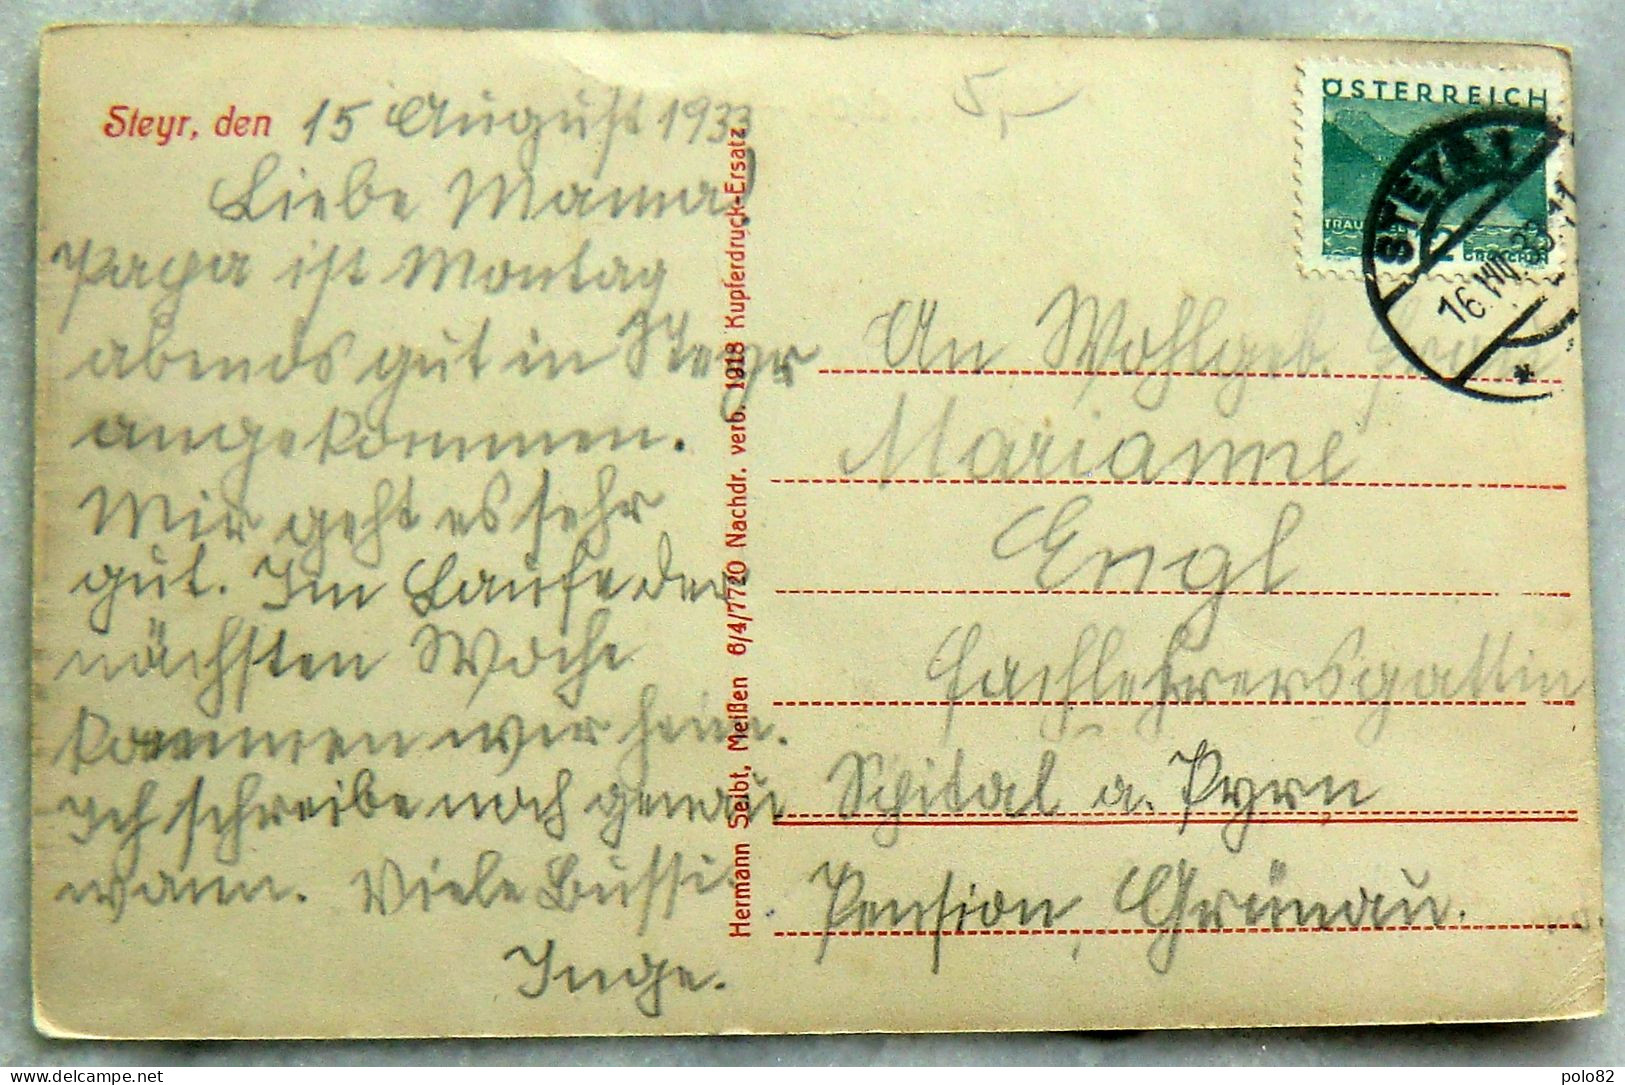 Steyr, den 15 August 1933
Liebe Mama!
Papa ist Montag
abends gut in Steyr
angekommen.
Mir geht es sehr
gut. Im Laufe der
nächsten Woche
kommen wir heim.
Ich schreibe noch genau
wann. Viele Bussi.
Inge.
Hermann Seibt, Meißen 6/4/7720 Nachdr. verb. 1918 Kupferdruck-Ersatz
5,-
ÖSTERREICH
GROSCHEN
STEYR
16.VIII.33.11
*
An Wohlgeb. Frau
Marianne
Engl
Fachlehrersgattin
Spital a. Pyrn
Pension Grünau.
polo82